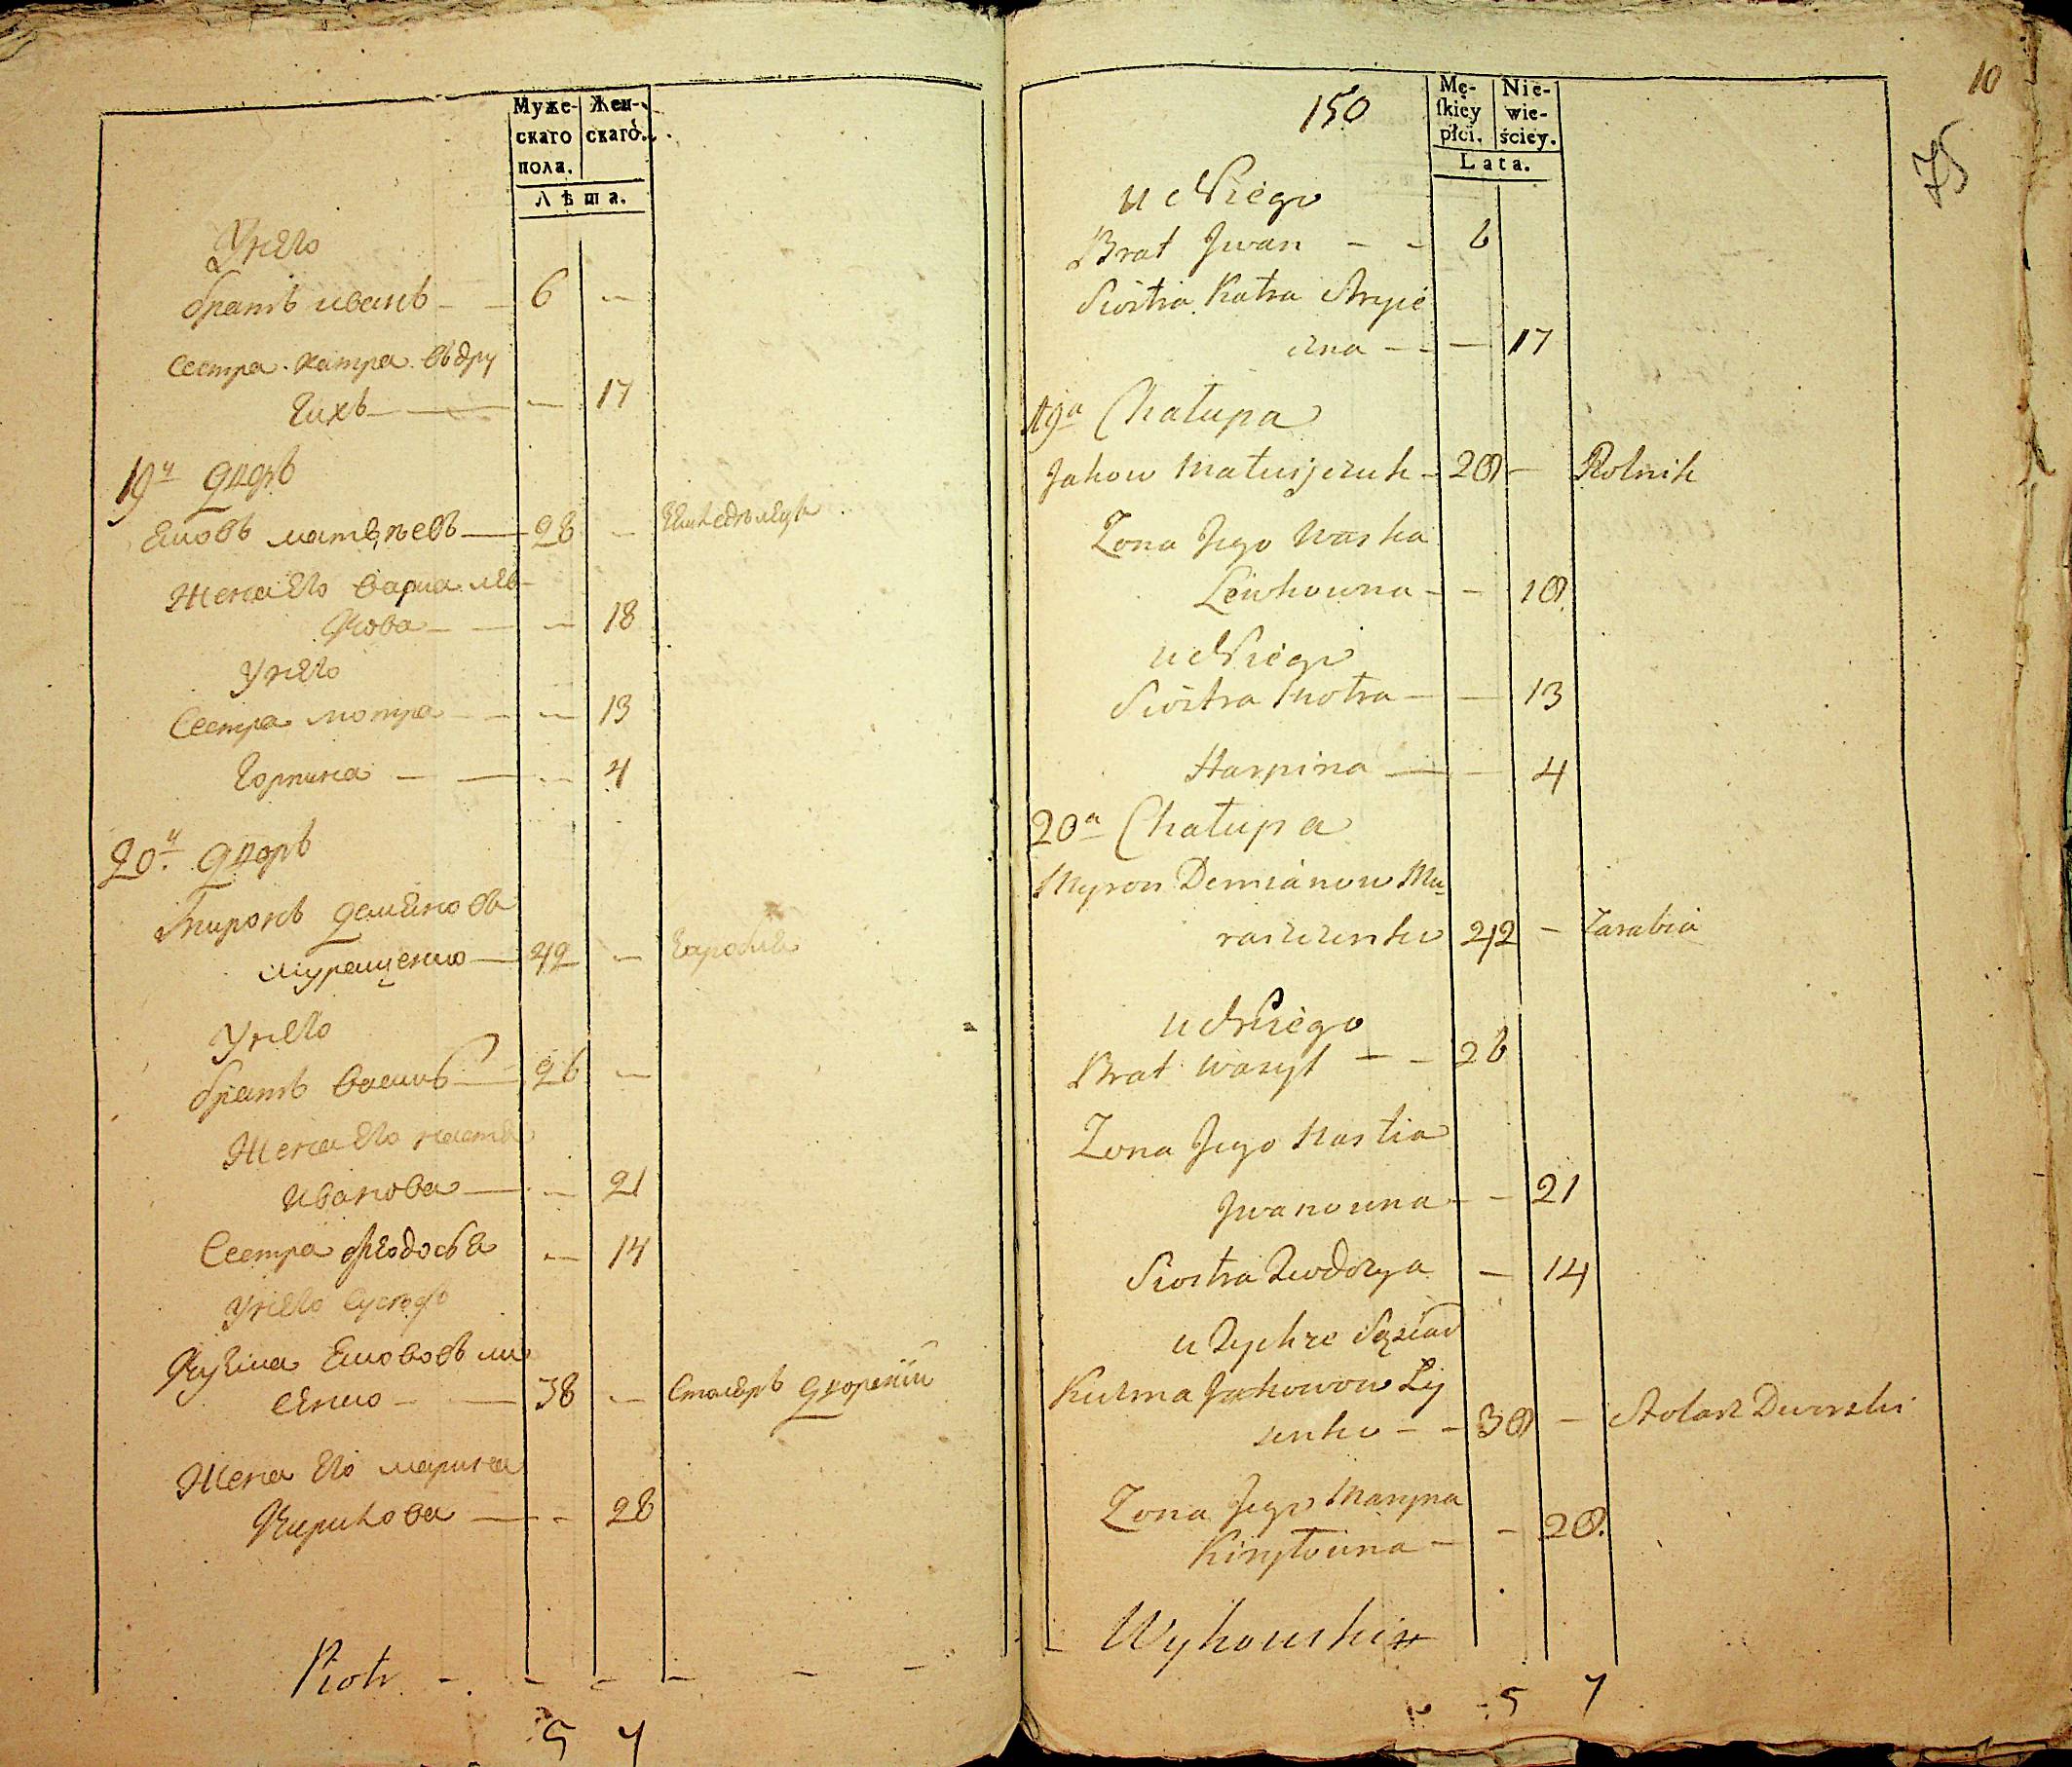 Муже-
скаго
пола.
Жен-
скаго.
Лѣта.
У него
братъ иванъ — — 6 —
Сестра катра въдру
гихъ — — 17
19й дворъ
Яковъ матвѣевъ — 28 —
Жена его васка лев
кова — — — 18
У него
Сестра мотра — — — 13
горпина — — — 4
20й дворъ
Миронъ демянова
муращенко — 42 —
У него
братъ василь — 26 —
Жена его настя
иванова — — 21
Сестра феодосья — 14
У него сусѣдъ
Кузма Якововъ ли
сенко — — 38 — столяръ дворскій
Жена его марина
Кирилова — — 28
Piotr — — — — — —
5 7
10
75
150
Mę-
ſkiey
płci.
Nie-
wie-
ściey.
Lata.
u Niego
Brat Jwan — — 6
Siostra Katra Stryie
czna — — — 17
19a Chałupa
Jakow Matwijczuk — 28 — Rolnik
Zona Jego Waska
Lewkowna — — 18.
u Niego
Siostra Motra — — 13
Harpina — — 4
20a Chałupa
Myron Demianow Mu-
raszczenko 42 — Zarabia
u Niego
Brat Wasyl — — 26
Zona Jego Nastia
Jwanowna — — 21
Siostra Teodozya — 14
u Tychze Sąsiad
Kuzma Jakowow Ly
senko — — 38 — Stolarz Dworski
Zona Jego Maryna
Kiryłowna — — 28.
Wykowski
5 7